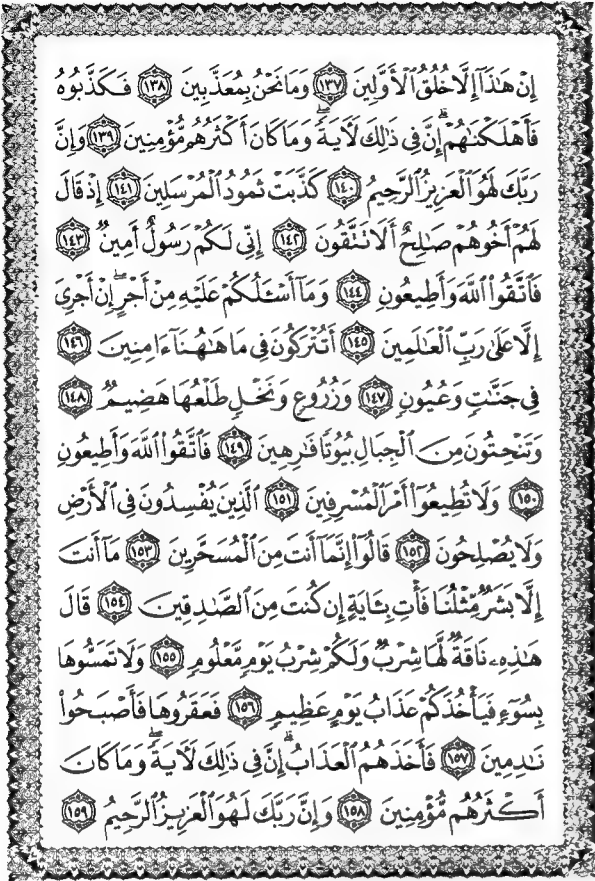 إِنْ هَٰذَآ إِلَّا خُلُقُ ٱلْأَوَّلِينَ ١٣٧ وَمَا نَحْنُ بِمُعَذَّبِينَ ١٣٨ فَكَذَّبُوهُ
فَأَهْلَكْنَٰهُمْ ۗ إِنَّ فِى ذَٰلِكَ لَأَيَةً ۖ وَمَا كَانَ أَكْثَرُهُم مُّؤْمِنِينَ ١٣٩ وَإِنَّ
رَبَّكَ لَهُوَ ٱلْعَزِيزُ ٱلرَّحِيمُ ١٤٠ كَذَّبَتْ ثَمُودُ ٱلْمُرْسَلِينَ ١٤١ إِذْ قَالَ
لَهُمْ أَخُوهُمْ صَٰلِحٌ أَلَا تَتَّقُونَ ١٤٢ إِنِّى لَكُمْ رَسُولٌ أَمِينٌ ١٤٣
فَٱتَّقُوا۟ ٱللَّهَ وَأَطِيعُونِ ١٤٤ وَمَآ أَسْـَٔلُكُمْ عَلَيْهِ مِنْ أَجْرٍ ۖ إِنْ أَجْرِىَ
إِلَّا عَلَىٰ رَبِّ ٱلْعَٰلَمِينَ ١٤٥ أَتُتْرَكُونَ فِى مَا هَٰهُنَآ ءَامِنِينَ ١٤٦
فِى جَنَّٰتٍ وَعُيُونٍ ١٤٧ وَزُرُوعٍ وَنَخْلٍ طَلْعُهَا هَضِيمٌ ١٤٨
وَتَنْحِتُونَ مِنَ ٱلْجِبَالِ بُيُوتًا فَٰرِهِينَ ١٤٩ فَٱتَّقُوا۟ ٱللَّهَ وَأَطِيعُونِ
١٥٠ وَلَا تُطِيعُوٓا۟ أَمْرَ ٱلْمُسْرِفِينَ ١٥١ ٱلَّذِينَ يُفْسِدُونَ فِى ٱلْأَرْضِ
وَلَا يُصْلِحُونَ ١٥٢ قَالُوٓا۟ إِنَّمَآ أَنتَ مِنَ ٱلْمُسَحَّرِينَ ١٥٣ مَآ أَنتَ
إِلَّا بَشَرٌ مِّثْلُنَا فَأْتِ بِـَٔايَةٍ إِن كُنتَ مِنَ ٱلصَّٰدِقِينَ ١٥٤ قَالَ
هَٰذِهِۦ نَاقَةٌ لَّهَا شِرْبٌ وَلَكُمْ شِرْبُ يَوْمٍ مَّعْلُومٍ ١٥٥ وَلَا تَمَسُّوهَا
بِسُوٓءٍ فَيَأْخُذَكُمْ عَذَابُ يَوْمٍ عَظِيمٍ ١٥٦ فَعَقَرُوهَا فَأَصْبَحُوا۟
نَٰدِمِينَ ١٥٧ فَأَخَذَهُمُ ٱلْعَذَابُ ۗ إِنَّ فِى ذَٰلِكَ لَأَيَةً ۖ وَمَا كَانَ
أَكْثَرُهُم مُّؤْمِنِينَ ١٥٨ وَإِنَّ رَبَّكَ لَهُوَ ٱلْعَزِيزُ ٱلرَّحِيمُ ١٥٩